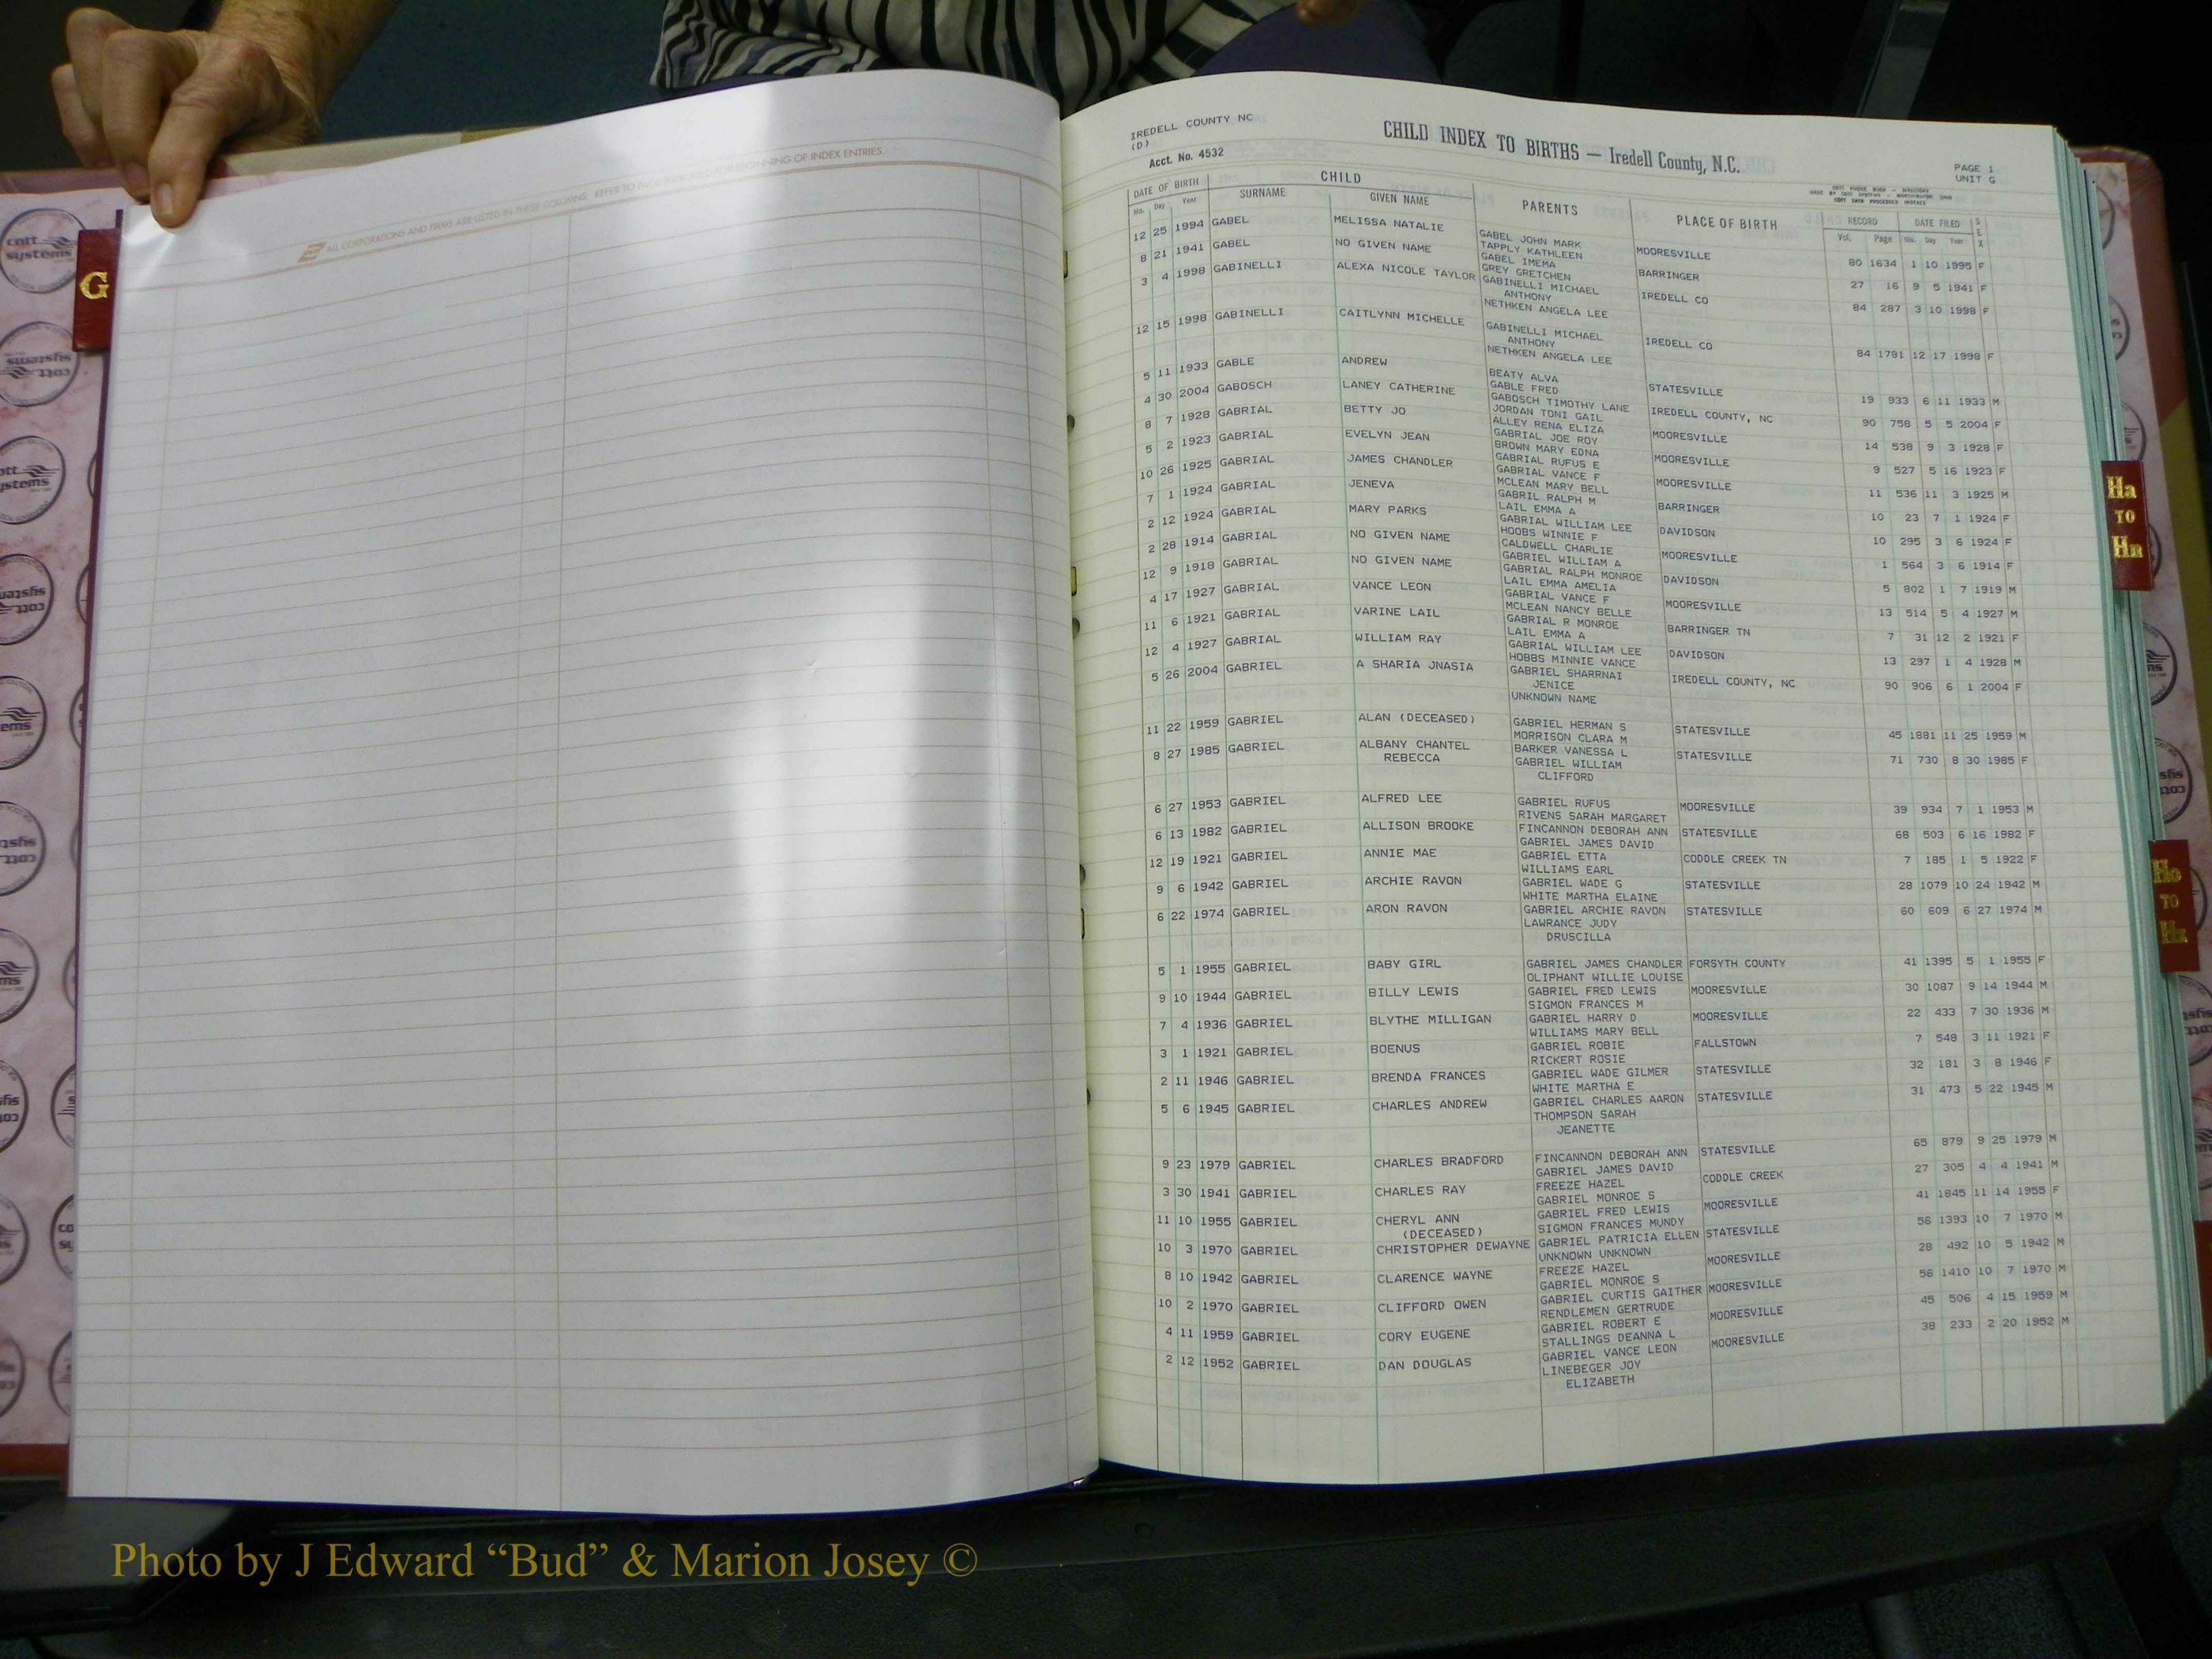 G
ALL CORPORATIONS AND FIRMS ARE LISTED IN THESE COLUMNS. REFER TO PAGE INDICATED FOR BEGINNING OF INDEX ENTRIES.
cott
systems
IREDELL COUNTY NC
(D)
CHILD INDEX TO BIRTHS — Iredell County, N.C.
Acct. No. 4532
PAGE 1
UNIT G
DATE OF BIRTH CHILD PARENTS PLACE OF BIRTH RECORD DATE FILED SEX
Mo. Day Year SURNAME GIVEN NAME Vol. Page Mo. Day Year
12 25 1994 GABEL MELISSA NATALIE GABEL JOHN MARK MOORESVILLE 80 1634 1 10 1995 F
TAPPLY KATHLEEN
8 21 1941 GABEL NO GIVEN NAME GABEL IMEMA BARRINGER 27 16 9 5 1941 F
GREY GRETCHEN
3 4 1998 GABINELLI ALEXA NICOLE TAYLOR GABINELLI MICHAEL IREDELL CO 84 287 3 10 1998 F
ANTHONY
NETHKEN ANGELA LEE
12 15 1998 GABINELLI CAITLYNN MICHELLE GABINELLI MICHAEL IREDELL CO 84 1791 12 17 1998 F
ANTHONY
NETHKEN ANGELA LEE
5 11 1933 GABLE ANDREW BEATY ALVA STATESVILLE 19 933 6 11 1933 M
GABLE FRED
4 30 2004 GABOSCH LANEY CATHERINE GABOSCH TIMOTHY LANE IREDELL COUNTY, NC 90 758 5 5 2004 F
JORDAN TONI GAIL
8 7 1928 GABRIAL BETTY JO ALLEY RENA ELIZA MOORESVILLE 14 538 9 3 1928 F
GABRIAL JOE ROY
5 2 1923 GABRIAL EVELYN JEAN BROWN MARY EDNA MOORESVILLE 9 527 5 16 1923 F
GABRIAL RUFUS E
10 26 1925 GABRIAL JAMES CHANDLER GABRIAL VANCE F MOORESVILLE 11 536 11 3 1925 M
MCLEAN MARY BELL
7 1 1924 GABRIAL JENEVA GABRIL RALPH M BARRINGER 10 23 7 1 1924 F
LAIL EMMA A
2 12 1924 GABRIAL MARY PARKS GABRIAL WILLIAM LEE DAVIDSON 10 295 3 6 1924 F
HOOBS WINNIE F
2 28 1914 GABRIAL NO GIVEN NAME CALDWELL CHARLIE MOORESVILLE 1 564 3 6 1914 F
GABRIEL WILLIAM A
12 9 1918 GABRIAL NO GIVEN NAME GABRIAL RALPH MONROE DAVIDSON 5 802 1 7 1919 M
LAIL EMMA AMELIA
4 17 1927 GABRIAL VANCE LEON GABRIAL VANCE F MOORESVILLE 13 514 5 4 1927 M
MCLEAN NANCY BELLE
11 6 1921 GABRIAL VARINE LAIL GABRIAL R MONROE BARRINGER TN 7 31 12 2 1921 F
LAIL EMMA A
12 4 1927 GABRIAL WILLIAM RAY GABRIAL WILLIAM LEE DAVIDSON 13 297 1 4 1928 M
HOBBS MINNIE VANCE
5 26 2004 GABRIEL A SHARIA JNASIA GABRIEL SHARRNAI IREDELL COUNTY, NC 90 906 6 1 2004 F
JENICE
UNKNOWN NAME
11 22 1959 GABRIEL ALAN (DECEASED) GABRIEL HERMAN S STATESVILLE 45 1881 11 25 1959 M
MORRISON CLARA M
8 27 1985 GABRIEL ALBANY CHANTEL BARKER VANESSA L STATESVILLE 71 730 8 30 1985 F
REBECCA GABRIEL WILLIAM
CLIFFORD
6 27 1953 GABRIEL ALFRED LEE GABRIEL RUFUS MOORESVILLE 39 934 7 1 1953 M
RIVENS SARAH MARGARET
6 13 1982 GABRIEL ALLISON BROOKE FINCANNON DEBORAH ANN STATESVILLE 68 503 6 16 1982 F
GABRIEL JAMES DAVID
12 19 1921 GABRIEL ANNIE MAE GABRIEL ETTA CODDLE CREEK TN 7 185 1 5 1922 F
WILLIAMS EARL
9 6 1942 GABRIEL ARCHIE RAVON GABRIEL WADE G STATESVILLE 28 1079 10 24 1942 M
WHITE MARTHA ELAINE
6 22 1974 GABRIEL ARON RAVON GABRIEL ARCHIE RAVON STATESVILLE 60 609 6 27 1974 M
LAWRANCE JUDY
DRUSCILLA
5 1 1955 GABRIEL BABY GIRL GABRIEL JAMES CHANDLER FORSYTH COUNTY 41 1395 5 1 1955 F
OLIPHANT WILLIE LOUISE
9 10 1944 GABRIEL BILLY LEWIS GABRIEL FRED LEWIS MOORESVILLE 30 1087 9 14 1944 M
SIGMON FRANCES M
7 4 1936 GABRIEL BLYTHE MILLIGAN GABRIEL HARRY D MOORESVILLE 22 433 7 30 1936 M
WILLIAMS MARY BELL
3 1 1921 GABRIEL BOENUS GABRIEL ROBIE FALLSTOWN 7 548 3 11 1921 F
RICKERT ROSIE
2 11 1946 GABRIEL BRENDA FRANCES GABRIEL WADE GILMER STATESVILLE 32 181 3 8 1946 F
WHITE MARTHA E
5 6 1945 GABRIEL CHARLES ANDREW GABRIEL CHARLES AARON STATESVILLE 31 473 5 22 1945 M
THOMPSON SARAH
JEANETTE
9 23 1979 GABRIEL CHARLES BRADFORD FINCANNON DEBORAH ANN STATESVILLE 65 879 9 25 1979 M
GABRIEL JAMES DAVID
3 30 1941 GABRIEL CHARLES RAY FREEZE HAZEL CODDLE CREEK 27 305 4 4 1941 M
GABRIEL MONROE S
11 10 1955 GABRIEL CHERYL ANN GABRIEL FRED LEWIS MOORESVILLE 41 1845 11 14 1955 F
(DECEASED) SIGMON FRANCES MUNDY
10 3 1970 GABRIEL CHRISTOPHER DEWAYNE GABRIEL PATRICIA ELLEN STATESVILLE 56 1393 10 7 1970 M
UNKNOWN UNKNOWN
8 10 1942 GABRIEL CLARENCE WAYNE FREEZE HAZEL MOORESVILLE 28 492 10 5 1942 M
GABRIEL MONROE S
10 2 1970 GABRIEL CLIFFORD OWEN GABRIEL CURTIS GAITHER MOORESVILLE 56 1410 10 7 1970 M
RENDLEMEN GERTRUDE
4 11 1959 GABRIEL CORY EUGENE GABRIEL ROBERT E MOORESVILLE 45 506 4 15 1959 M
STALLINGS DEANNA L
2 12 1952 GABRIEL DAN DOUGLAS GABRIEL VANCE LEON MOORESVILLE 38 233 2 20 1952 M
LINEBEGER JOY
ELIZABETH
Ha
TO
Hn
Ho
TO
Hz
Photo by J Edward “Bud” & Marion Josey ©